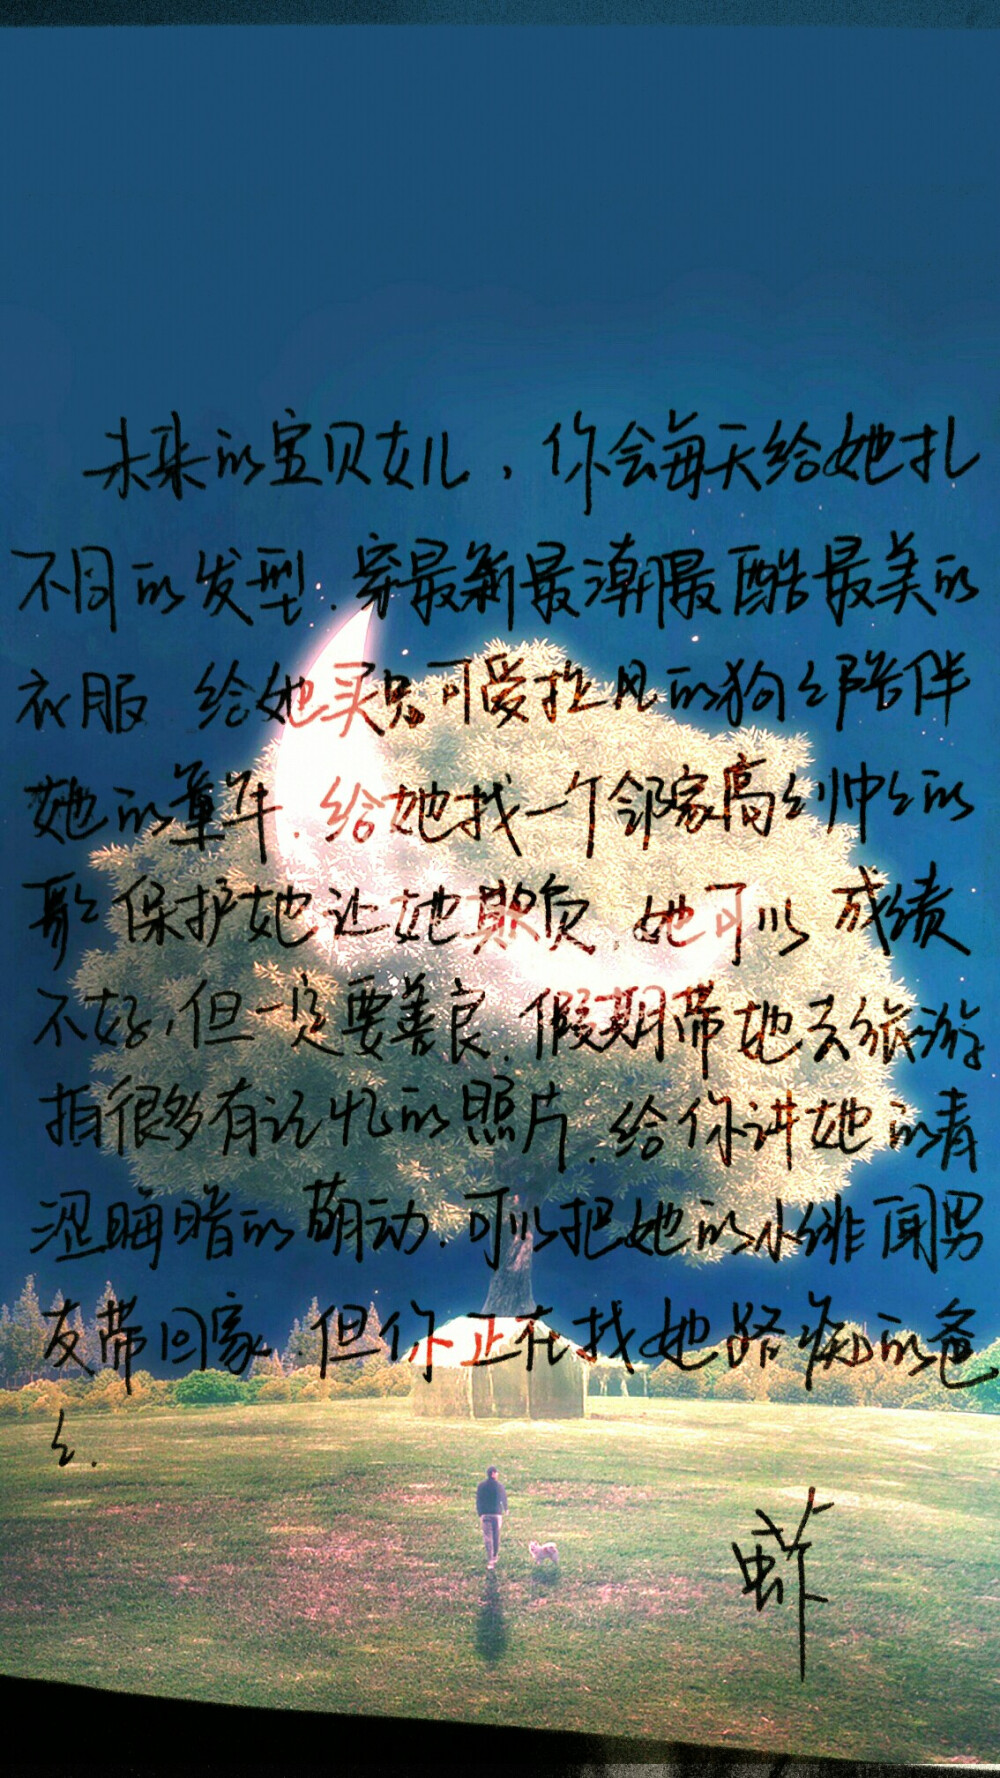 未来的宝贝女儿，你会每天给她扎
不同的发型.穿最新最潮最酷最美的
衣服 给她买只可爱拉风的狗狗陪伴
她的童年.给她找一个邻家高高帅帅的
哥哥保护她让她欺负.她可以成绩
不好,但一定要善良.假期带她去旅游
拍很多有记忆的照片.给你讲她的青
涩晦暗的萌动.可以把她的小绯闻男
友带回家.但你正在找她路痴的爸
爸.